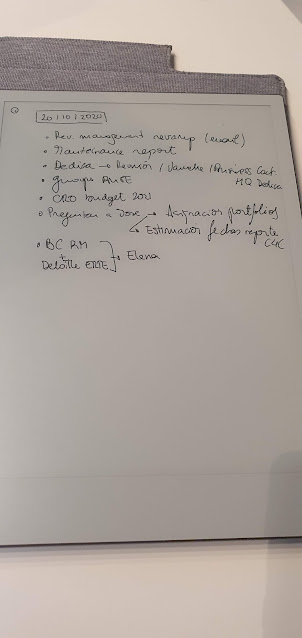 20/10/2020
• Rev. management revamp (email)
• Maintenance report
• Dedica → Reunión / / Business Cat.
MQ Dedica
• Grupos
• CRO budget 2021
• Preguntar a Jose → Asignación portfolios
→ Estimación fechas reporte
C4C
• BC RM
+ → Elena
Deloitte ERTE